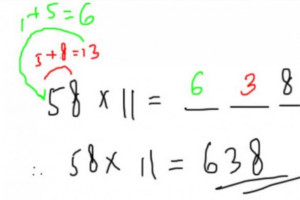 1+5=6
5+8=13
58 × 11 = 6 3 8
∴ 58 × 11 = 638